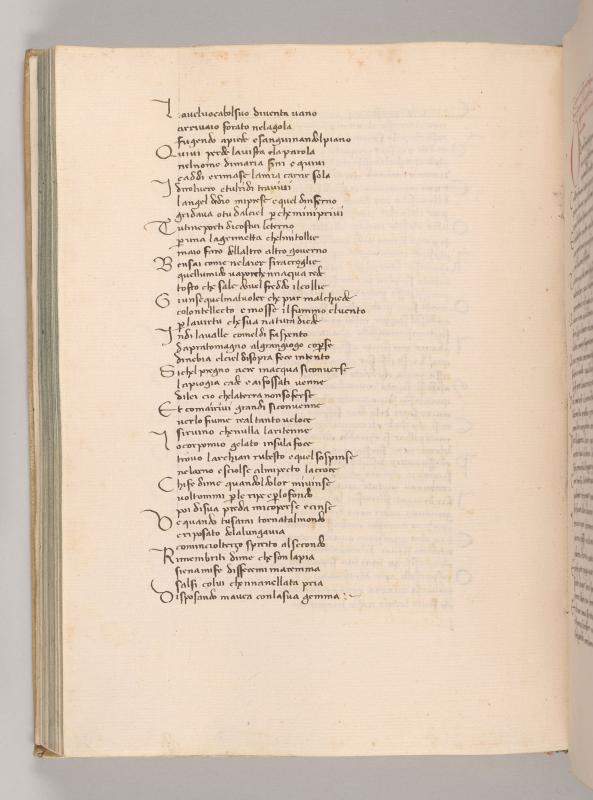 Lavelvocabolsuo diventa vano
arrivaio forato nelagola
Fugendo apiede esanguinandolpiano
Quivi perde lavista ela parola
nelnome dimaria fini e quivi
caddi erimase lamia carne sola
I diroluero etulridi traivivi
langel dedio miprese equel dinferno
gridava otu dalciel p che miniprivi
Tutineporti dicostui leterno
p una lagrimetta chelmitollie
maio faro dellaltro altro governo
Bensai come nelaier siraccoglie
quellumido vaporchennacqua rede
tosto che sale dovel freddo ilcollie
Giunsequelmalvoler che pur malchiede
colontellecto e mosse ilfummo eluento
p lavirtu che sua natura diede
Indi lavalle comeldi fu spento
dapratomagno algrangiogo coperse
dinebia elciel disopra fece intento
Sichel pregno aere inacqua siconverse
lapiogia cade e aifossati venne
dilei cio chelaterra nonsoferse
Et comairivi grandi siconvenne
verlo fiume realtanto veloce
I siruino chenulla laritenne
locorpomio gelato insula foce
trovo larchian rubesto equel sospinse
nelarno esciolse almipecto lacroce
Chife dime quandoldolor mivinse
voltommi p le ripe e p lofondo
poi disua preda micoperse ecinse
De quando tusarai tornatalmondo
eriposato delalungavia
comincioltergo spirito alsecondo
Rimembriti dime cheson lapia
sienamife disfecemi maremma
Salsi colui chennanellata pria
Disposando mavea conlasua gemma :~